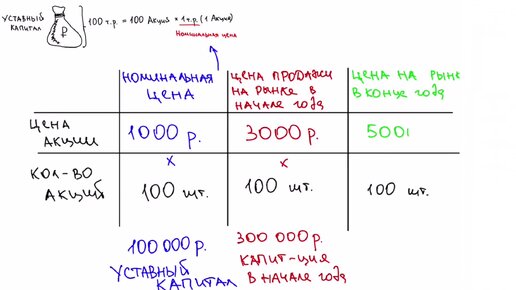 УСТАВНЫЙ
КАПИТАЛ
₽
100 т.р. = 100 Акций × 1 т.р. (1 Акция)
Номинальная цена
НОМИНАЛЬНАЯ
ЦЕНА
ЦЕНА ПРОДАЖИ
НА РЫНКЕ В
НАЧАЛЕ ГОДА
ЦЕНА НА РЫНК
В КОНЦЕ ГОДА
ЦЕНА
АКЦИИ
1000 р.
3000 р.
500
КОЛ-ВО
АКЦИЙ
×
100 шт.
×
100 шт.
100 шт.
100 000 р.
УСТАВНЫЙ
КАПИТАЛ
300 000 р.
КАПИТ-ЦИЯ
В НАЧАЛЕ ГОДА